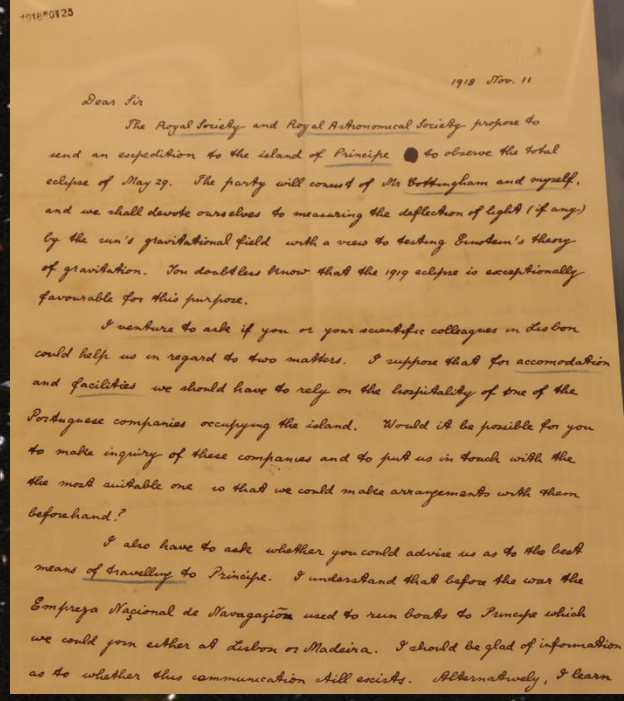 1918 Nov. 11
Dear Sir
The Royal Society and Royal Astronomical Society propose to
send an expedition to the island of Principe to observe the total
eclipse of May 29. The party will consist of Mr Cottingham and myself,
and we shall devote ourselves to measuring the deflection of light (if any)
by the sun's gravitational field with a view to testing Einstein's theory
of gravitation. You doubtless know that the 1919 eclipse is exceptionally
favourable for this purpose.
I venture to ask if you or your scientific colleagues in Lisbon
could help us in regard to two matters. I suppose that for accomodation
and facilities we should have to rely on the hospitality of one of the
Portuguese companies occupying the island. Would it be possible for you
to make inquiry of these companies and to put us in touch with the
the most suitable one so that we could make arrangements with them
beforehand?
I also have to ask whether you could advise us as to the best
means of travelling to Principe. I understand that before the war the
Empreza Naçional de Navagaçion used to run boats to Principe which
we could join either at Lisbon or Madeira. I should be glad of information
as to whether this communication still exists. Alternatively, I learn